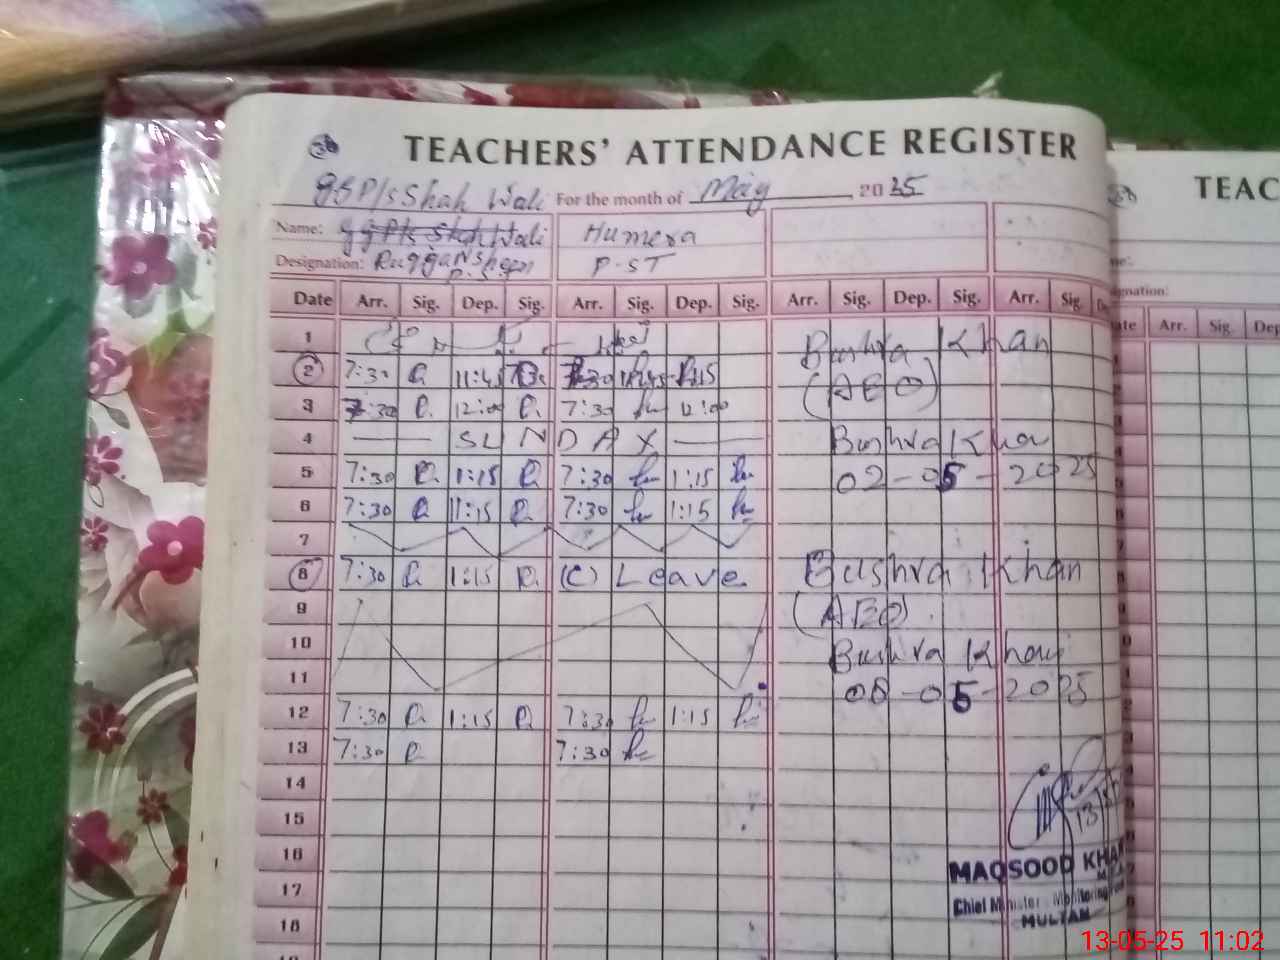 TEACHERS' ATTENDANCE REGISTER
GGP/s Shah Wali For the month of May 2025
Name: Humera
Designation: P.ST
Date Arr. Sig. Dep. Sig. Arr. Sig. Dep. Sig. Arr. Sig. Dep. Sig. Arr. Sig.
1 Bushra Khan
2 7:30 11:45 7:30 11:45
(AEO)
3 7:30 12:00 7:30 12:00
4 SUNDAY Bushra Khan
5 7:30 1:15 7:30 1:15 02-05-2025
6 7:30 11:15 7:30 1:15
7
8 7:30 1:15 (C) Leave Bushra Khan
9 (AEO)
10 Bushra Khan
11 08-05-2025
12 7:30 1:15 7:30 1:15
13 7:30 7:30
14
15 13/5/
16
MAQSOOD KHAN
17
Chief Minister Monitoring
18 MULTAN
TEAC
Arr. Sig. Dep
13-05-25 11:02